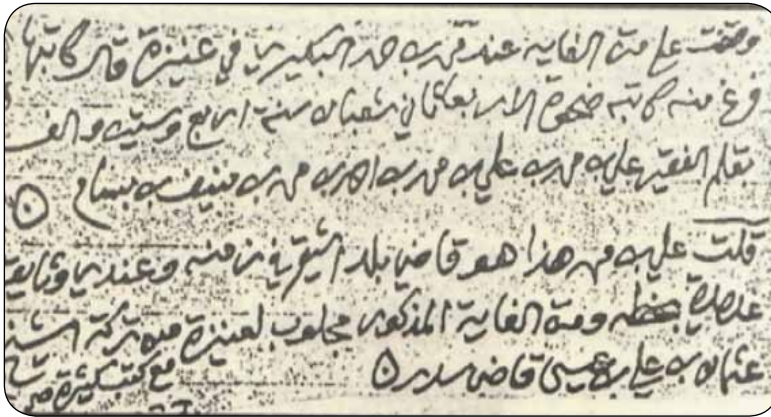 وقفت على متن الغاية عند محمد بن حمد البكيري في عنيزة قال كاتبها
فرغ منه كاتبه ضحوة الاربعا ثاني شعبان سنة اربع وستين والف
بقلم الفقير علي بن محمد بن علي بن محمد بن احمد بن محمد بن منيف بن بسام
قلت علي بن محمد هذا هو قاضي بلد اشيقر في زمنه وعندي وثايق
عديدة بخطه ومتن الغاية المذكور مجلوب لعنيزة من تركة الشيخ
عثمان بن علي بن عيسى قاضي سدير مع كتب كثيرة